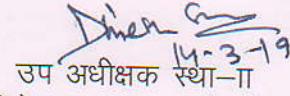 Dinesh
14-3-19
उप अधीक्षक स्था–II